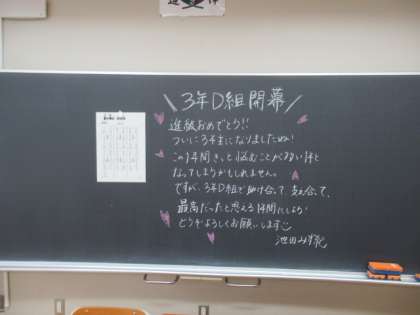 ＼3年D組開幕／
進級おめでとう!!
ついに3年生になりましたね!
この1年間きっと悩むことが多い1年と
なってしまうかもしれません。
ですが、3年D組で助け合って支え合って、
最高だったと思える1年間にしよう!
どうぞよろしくお願いします
池田み